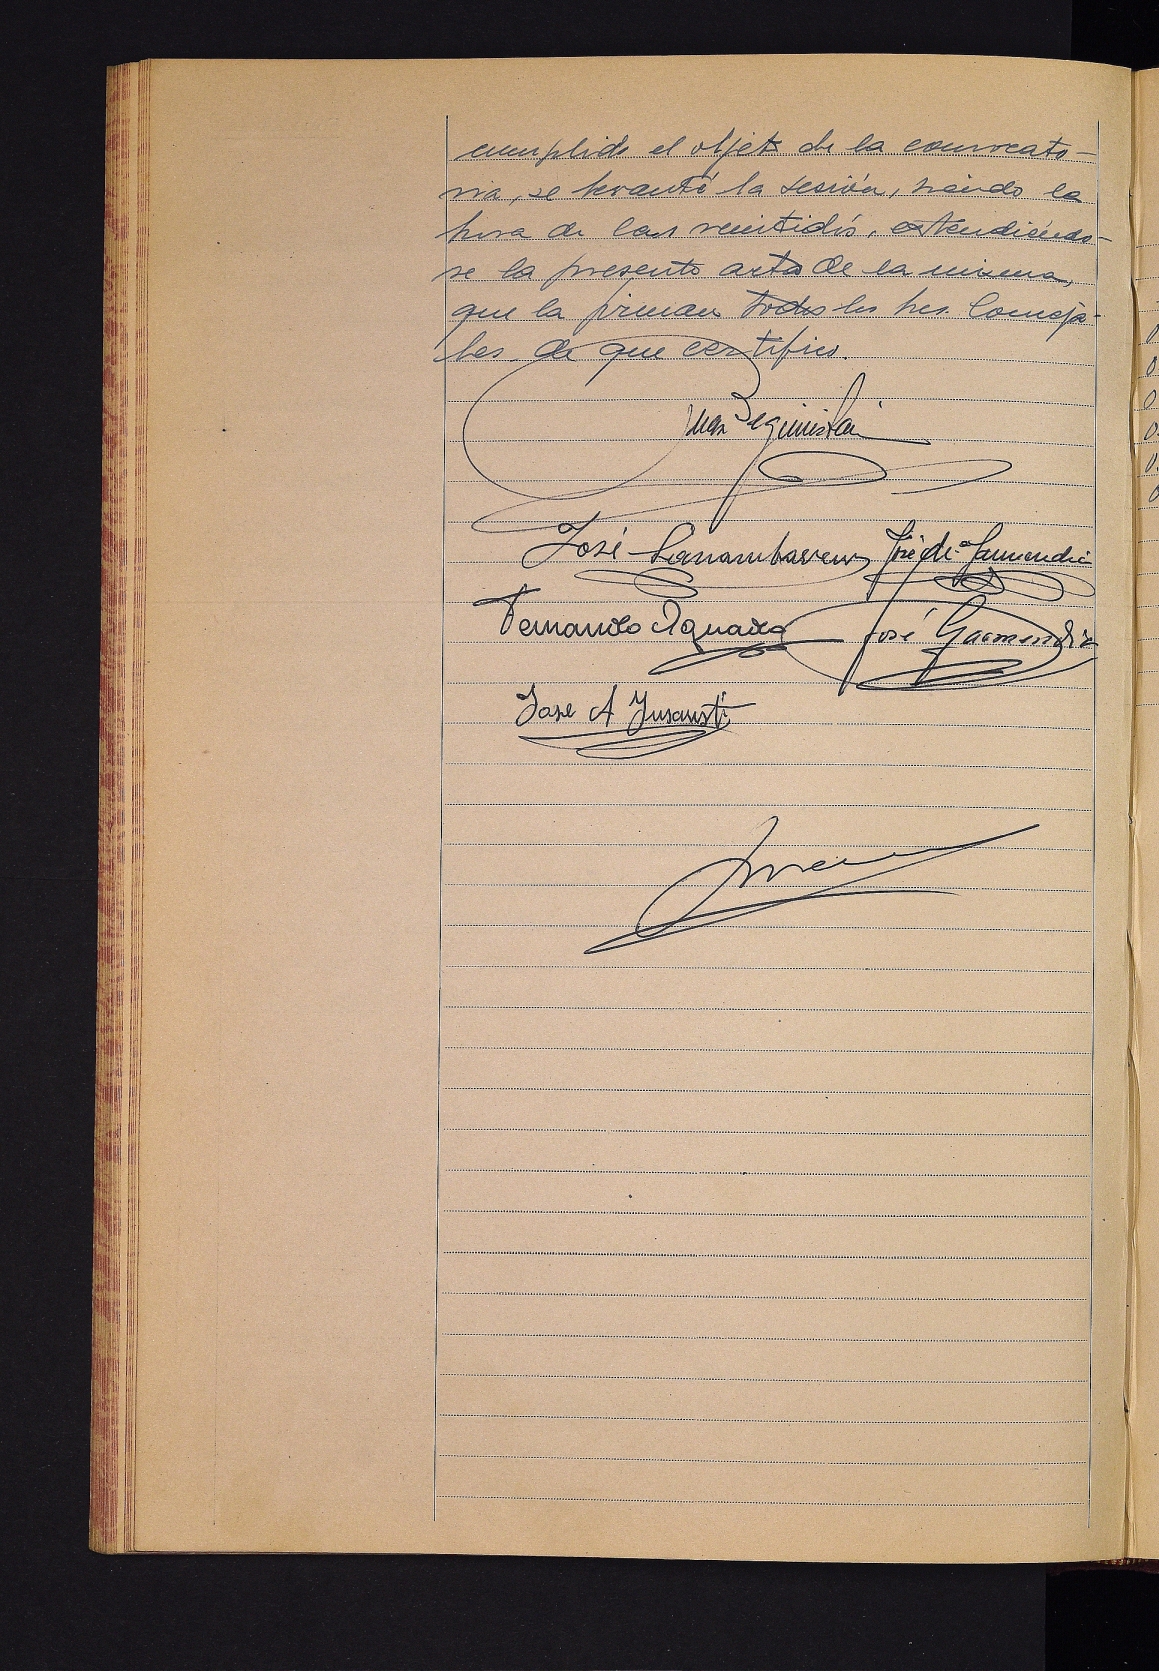 cumplido el objeto de la convocato-
ria, se levantó la sesión, siendo la
hora de las veintidós, extendiéndo-
se la presente acta de la misma,
que la firman todos los Sres. Conceja-
les, de que certifico.
Juan Beguiristain
José
José Garmendia
Fernando Aguado
Jose A